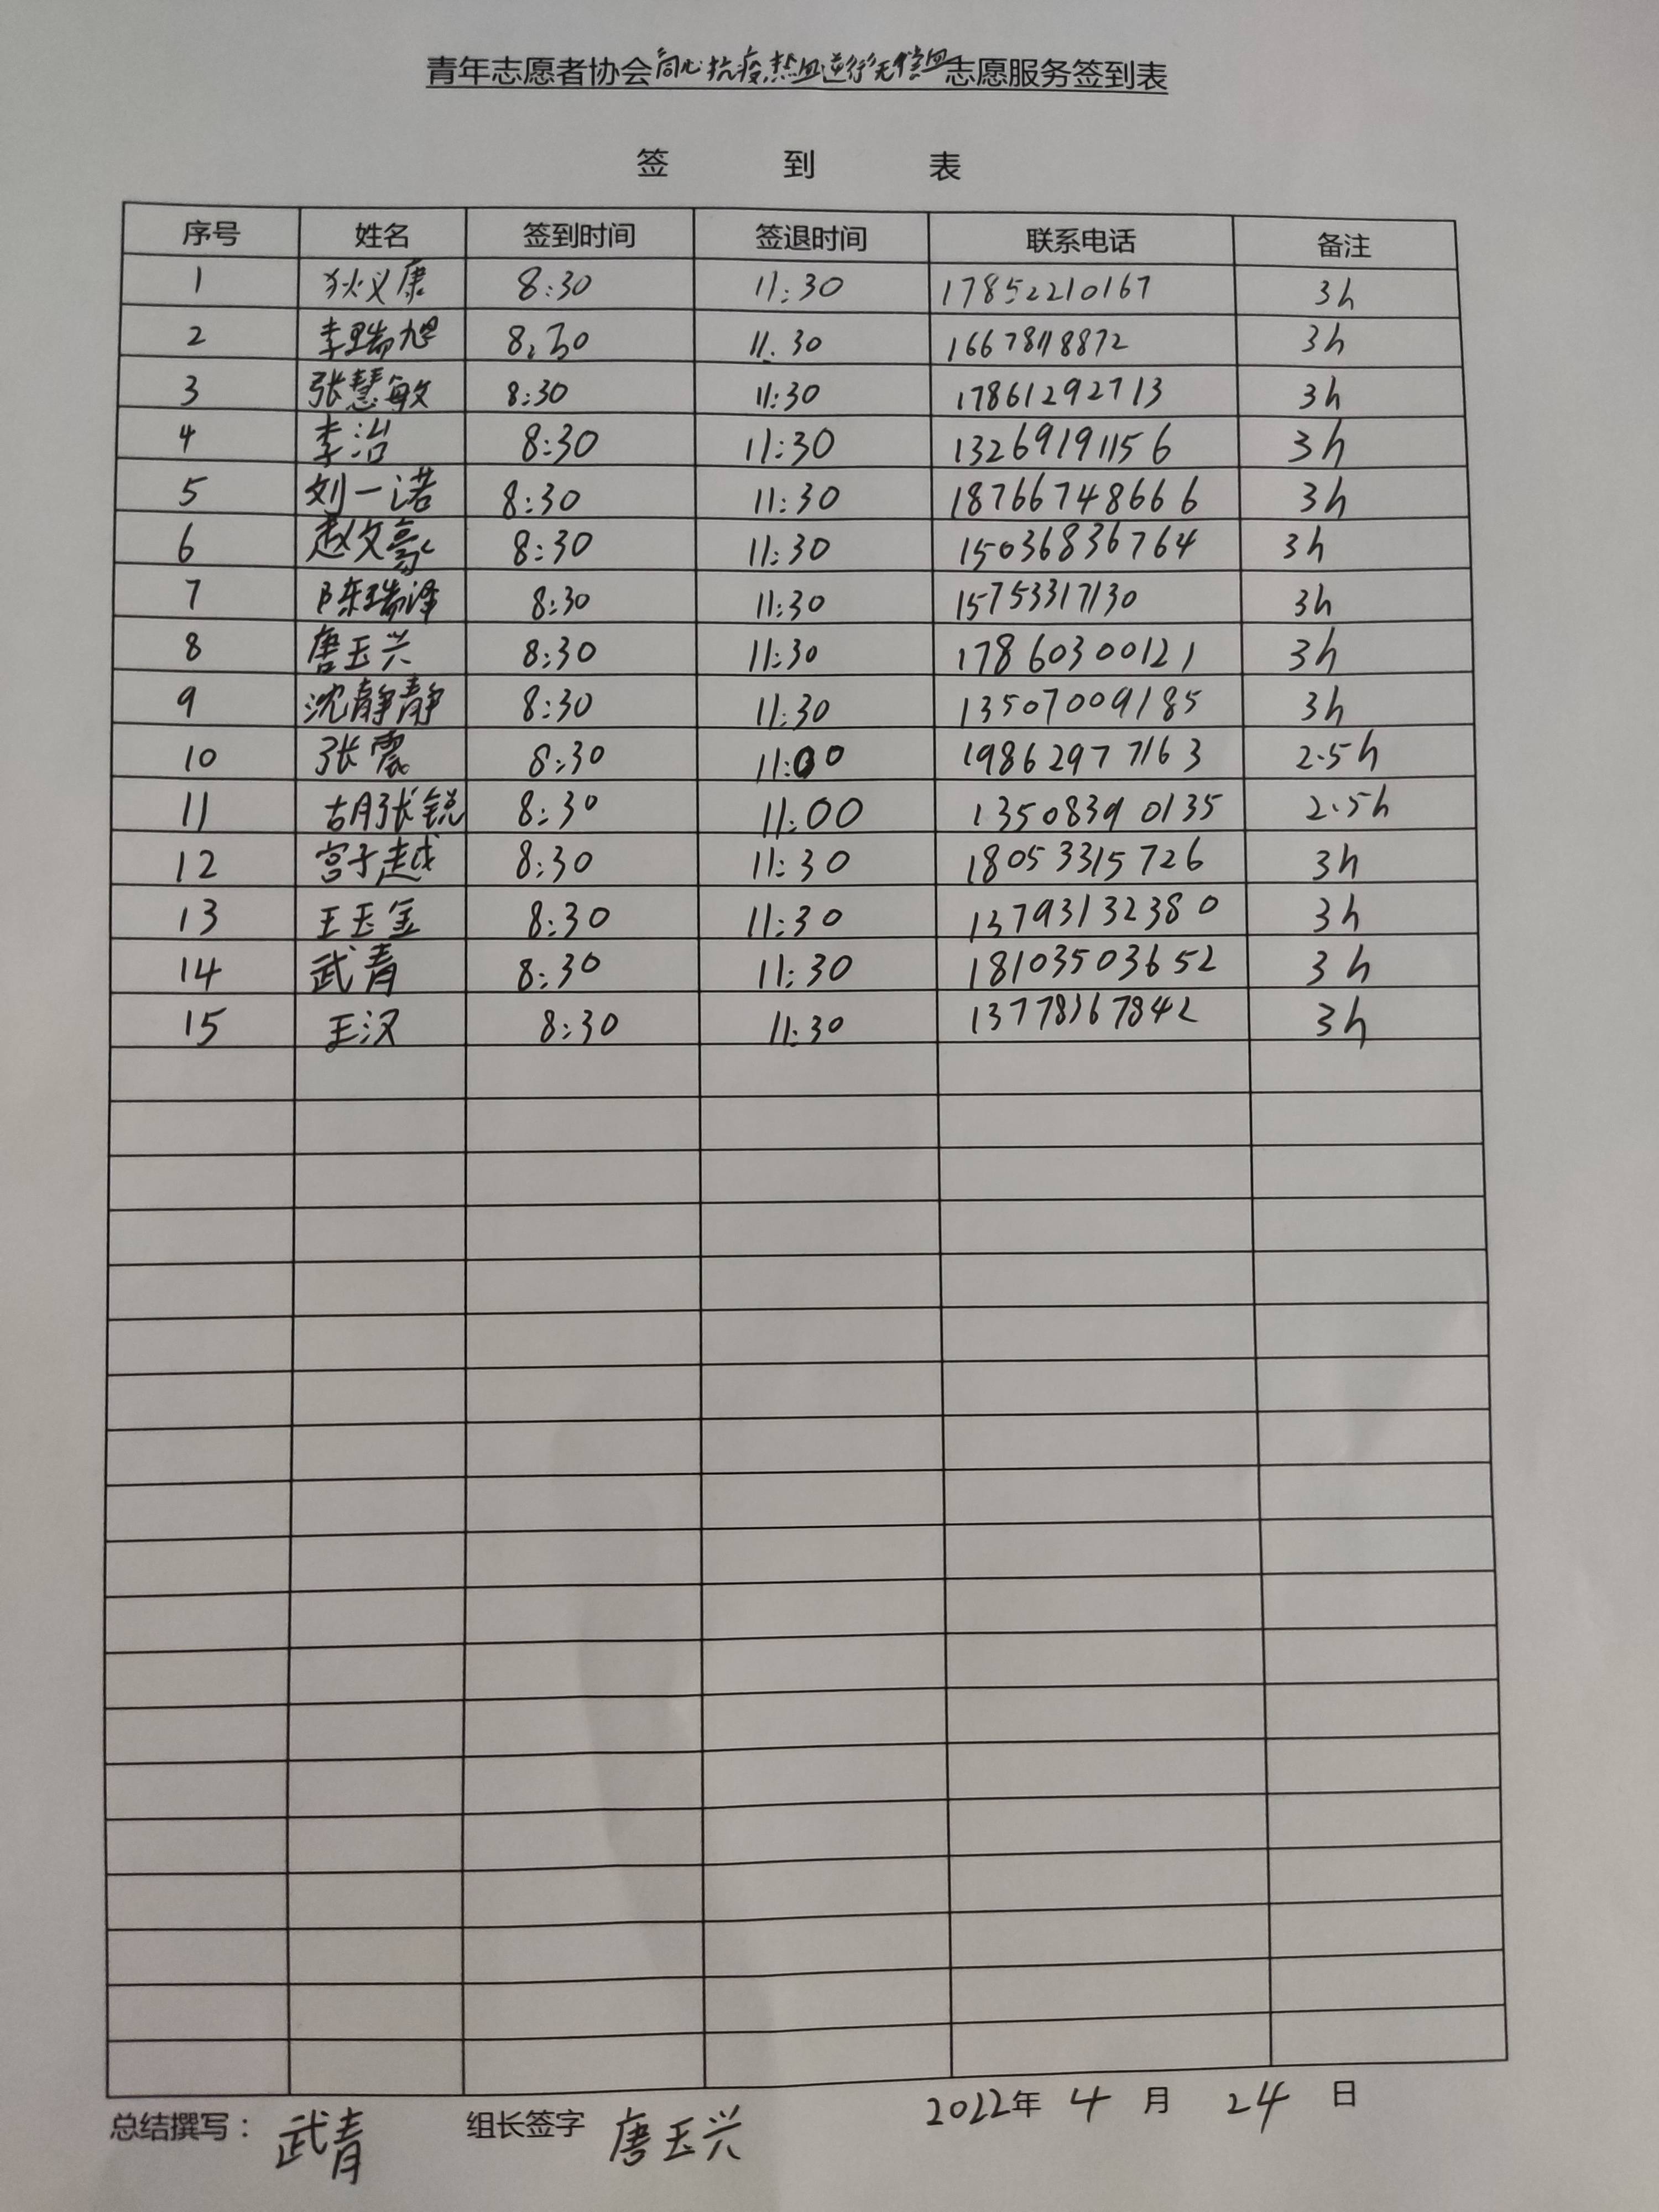 青年志愿者协会“同心抗疫,热血逆行”无偿血志愿服务签到表
签 到 表
序号 姓名 签到时间 签退时间 联系电话 备注
1 狄义康 8:30 11:30 17852210167 3h
2 李瑞旭 8:30 11:30 16678118872 3h
3 张慧敏 8:30 11:30 17861292713 3h
4 李治 8:30 11:30 13269191156 3h
5 刘一诺 8:30 11:30 18766748666 3h
6 赵文豪 8:30 11:30 15036836764 3h
7 陈瑞泽 8:30 11:30 15753317130 3h
8 唐玉兴 8:30 11:30 17860300121 3h
9 沈静静 8:30 11:30 13507009185 3h
10 张震 8:30 11:00 19862977163 2.5h
11 胡张锐 8:30 11:00 13508390135 2.5h
12 宫子越 8:30 11:30 18053315726 3h
13 王玉金 8:30 11:30 13793132380 3h
14 武青 8:30 11:30 18103503652 3h
15 王汉 8:30 11:30 13778367842 3h
总结撰写： 武青 组长签字 唐玉兴 2022年 4 月 24 日